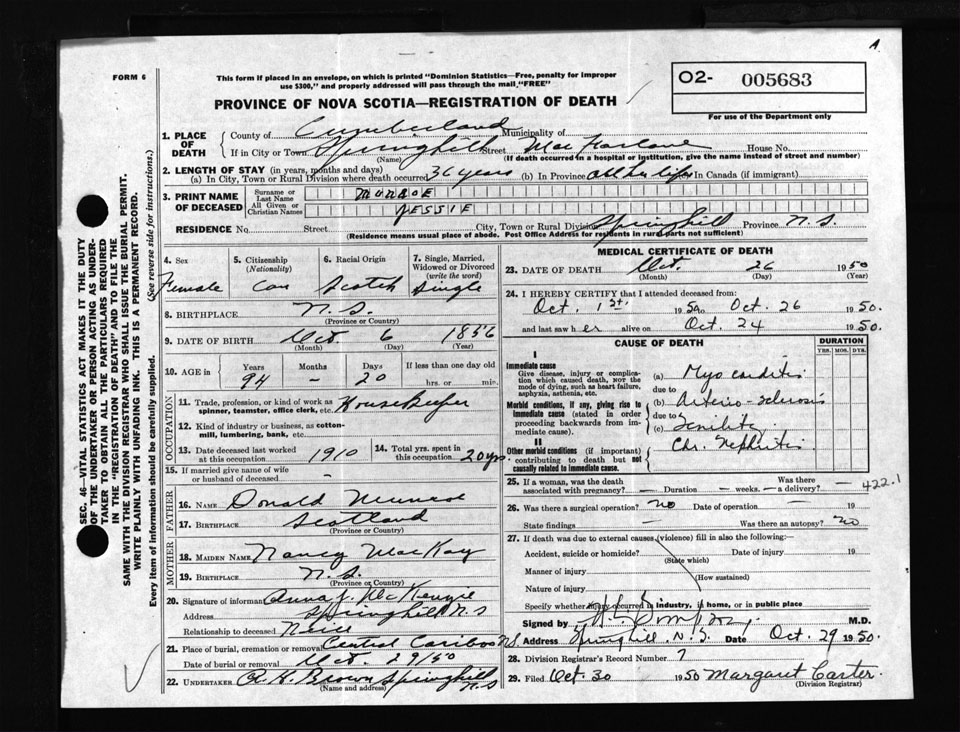 A
FORM 6
This form if placed in an envelope, on which is printed "Dominion Statistics—Free, penalty for improper
use $300," and properly addressed will pass through the mail "FREE"
O2- 005683
For use of the Department only
PROVINCE OF NOVA SCOTIA—REGISTRATION OF DEATH
SEC. 46—VITAL STATISTICS ACT MAKES IT THE DUTY
OF THE UNDERTAKER OR PERSON ACTING AS UNDER-
TAKER TO OBTAIN ALL THE PARTICULARS REQUIRED
IN THE "REGISTRATION OF DEATH" AND TO FILE THE
SAME WITH THE DIVISION REGISTRAR WHO SHALL ISSUE THE BURIAL PERMIT.
WRITE PLAINLY WITH UNFADING INK. THIS IS A PERMANENT RECORD.
Every item of information should be carefully supplied. (See reverse side for instructions.)
1. PLACE OF DEATH
County of Cumberland Municipality of
If in City or Town Springhill Street MacFarlane House No.
(Name) (If death occurred in a hospital or institution, give the name instead of street and number)
2. LENGTH OF STAY (in years, months and days)
(a) In City, Town or Rural Division where death occurred 36 years (b) In Province all her life in Canada (if immigrant)
3. PRINT NAME OF DECEASED
Surname or Last Name MUNROE
All Given or Christian Names JESSIE
RESIDENCE No. Street City, Town or Rural Division Springhill Province N.S.
(Residence means usual place of abode. Post Office Address for residents in rural parts not sufficient)
4. Sex Female
5. Citizenship (Nationality) Can
6. Racial Origin Scotch
7. Single, Married, Widowed or Divorced (write the word) Single
8. BIRTHPLACE N.S.
(Province or Country)
9. DATE OF BIRTH Oct. 6 1856
(Month) (Day) (Year)
10. AGE in Years Months Days If less than one day old
94 — 20 hrs. or min.
OCCUPATION
11. Trade, profession, or kind of work as
spinner, teamster, office clerk, etc. Housekeeper
12. Kind of industry or business, as cotton-
mill, lumbering, bank, etc.
13. Date deceased last worked
at this occupation 1910
14. Total yrs. spent in
this occupation 20 yrs
15. If married give name of wife
or husband of deceased —
FATHER
16. Name Donald Munro
17. Birthplace Scotland
(Province or Country)
MOTHER
18. Maiden Name Nancy MacKay
19. Birthplace N.S.
(Province or Country)
20. Signature of informant Anna J. McKenzie
Address Springhill N.S
Relationship to deceased Neice
21. Place of burial, cremation or removal Central Cariboo N.S.
Date of burial or removal Oct. 29/50
22. UNDERTAKER A.H. Brown Springhill N.S
(Name and address)
MEDICAL CERTIFICATE OF DEATH
23. DATE OF DEATH Oct. 26 1950
(Month) (Day) (Year)
24. I HEREBY CERTIFY that I attended deceased from:
Oct. 1st. 1950 Oct. 26 1950.
and last saw her alive on Oct. 24 1950.
CAUSE OF DEATH
DURATION
YRS. MOS. DYS.
I
Immediate cause
Give disease, injury or complica-
tion which caused death, NOT the
mode of dying, such as heart failure,
asphyxia, asthenia, etc.
(a) Myocarditis
due to
Morbid conditions, if any, giving rise to
immediate cause (stated in order
proceeding backwards from im-
mediate cause).
(b) Arterio-sclerosis
due to
(c) Senility
II
Other morbid conditions (if important)
contributing to death but not
causally related to immediate cause.
Chr. Nephritis
25. If a woman, was the death Was there
associated with pregnancy? — Duration — weeks. — a delivery? — 422.1
26. Was there a surgical operation? no Date of operation 19
State findings — Was there an autopsy? no
27. If death was due to external causes (violence) fill in also the following:
Accident, suicide or homicide? Date of injury 19
(State which)
Manner of injury
(How sustained)
Nature of injury
Specify whether injury occurred in industry, in home, or in public place
Signed by M.D.
Address Springhill, N.S. Date Oct. 29 1950.
28. Division Registrar's Record Number 7
29. Filed Oct 30 1950 Margaret Carter.
(Division Registrar)